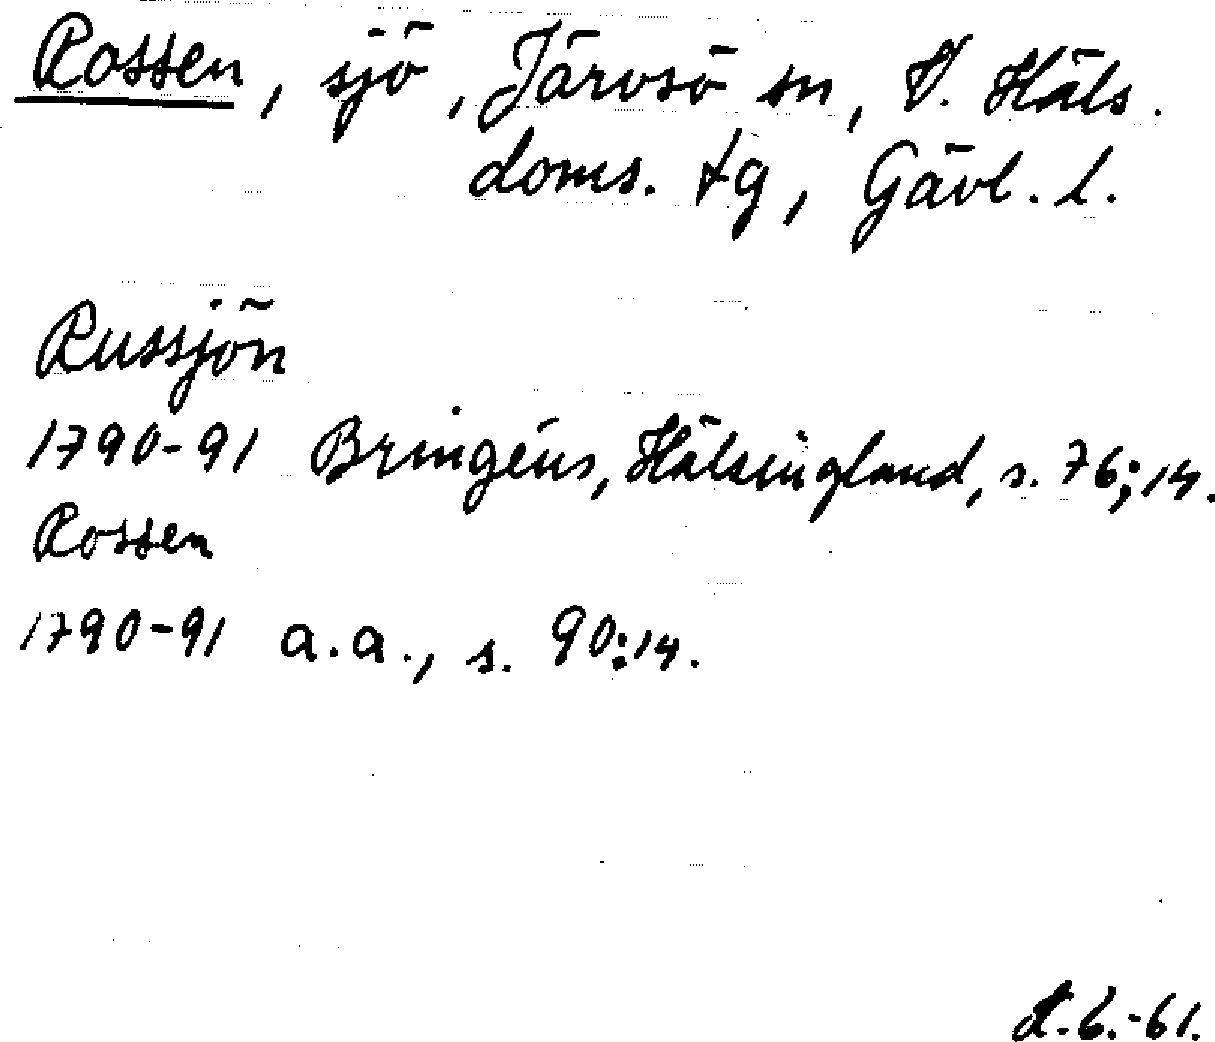 Rossen, sjö, Järvsö sn, V. Häls.
doms. tg, Gävl. l.
Russjön
1790-91 Bringéus, Hälsingland, s. 76:14.
Rossen
1790-91 a.a., s. 90:14.
.6.-61.